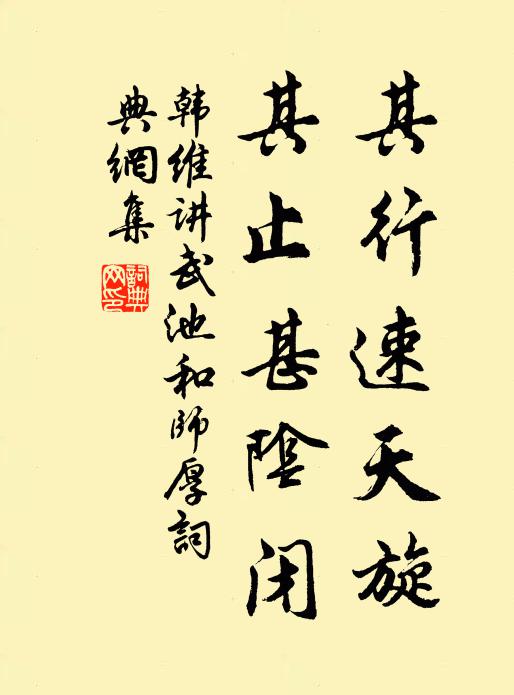 其行速天旋
其止甚陰闭
韩維讲武池和師厚詞
典網集
詞典
网印